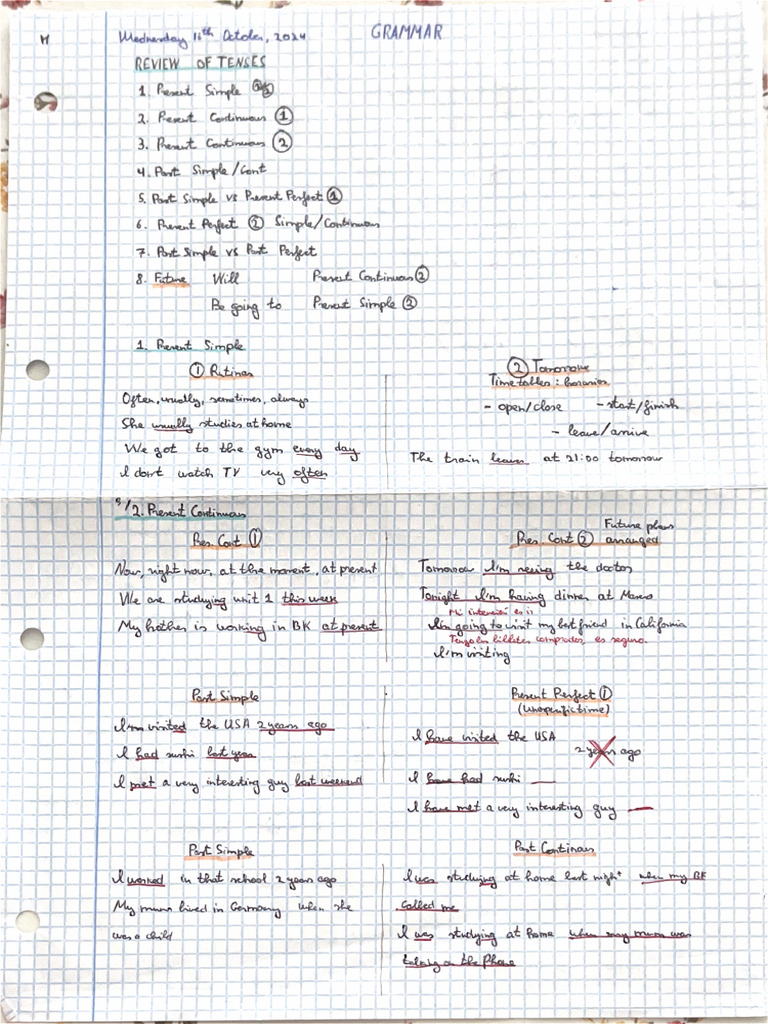 Wednesday 11th October, 2024 GRAMMAR
REVIEW OF TENSES
1. Present Simple
2. Present Continuous ①
3. Present Continuous ②
4. Past Simple/Cont
5. Past Simple vs Present Perfect ①
6. Present Perfect ② Simple/Continuous
7. Past Simple vs Past Perfect
8. Future Will Present Continuous ②
Be going to Present Simple ②
1. Present Simple
① Rutinas
Often, usually, sometimes, always
She usually studies at home
We got to the gym every day
I don't watch TV very often
② Tomorrow
Time tables: horarios
- open/close - start/finish
- leave/arrive
The train leaves at 21:00 tomorrow
2. Present Continuous
Pres. Cont ①
Now, right now, at the moment, at present
We are studying unit 1 this week
My brother is working in BK at present
Pres. Cont ② Future plans arranged
Tomorrow I'm seeing the doctor
Tonight I'm having dinner at Marcos
Mi intención es ir
I'm going to visit my best friend in California
Tengo los billetes comprados, es seguro.
I'm visiting
Past Simple
I'm visited the USA 2 years ago
I had sushi last year
I met a very interesting guy last weekend
Present Perfect ①
(Unespecific time)
I have visited the USA
2 years ago
I have had sushi
I have met a very interesting guy
Past Simple
I worked in that school 2 years ago
My mum lived in Germany when she
was a child
Past Continous
I was studying at home last night when my BF
called me
I was studying at home when my mum was
talking on the phone